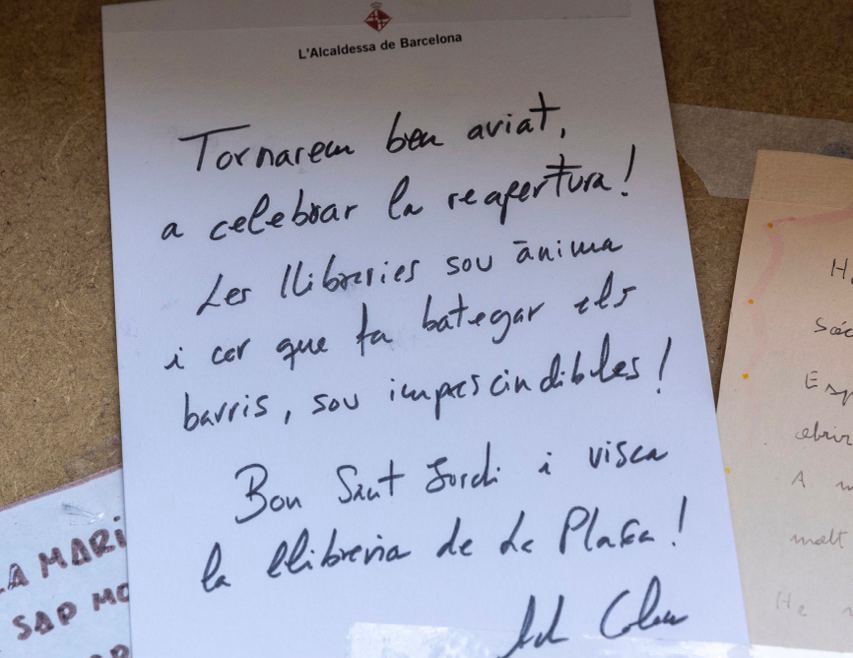 L'Alcaldessa de Barcelona
Tornarem ben aviat,
a celebrar la reapertura!
Les llibreries sou ànima
i cor que fa bategar els
barris, sou imprescindibles!
Bon Sant Jordi i visca
la llibreria de La Plaça!
Ada Colau
LA MARI
SAP MO
H
Sóc
Esp
obrir
A m
molt
He